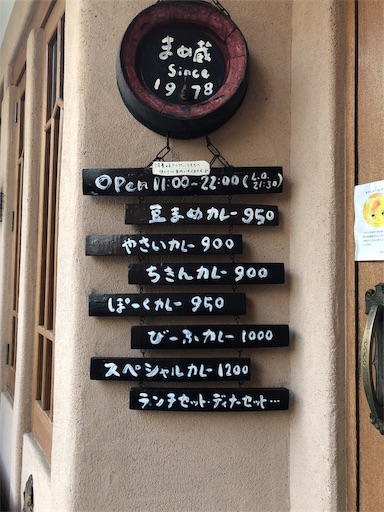 まめ蔵
Since
1978
Open 11:00~22:00 (L.O. 21:30)
豆まめカレー 950
やさいカレー 900
ちきんカレー 900
ぽーくカレー 950
びーふカレー 1000
スペシャルカレー 1200
ランチセット・ディナーセット…